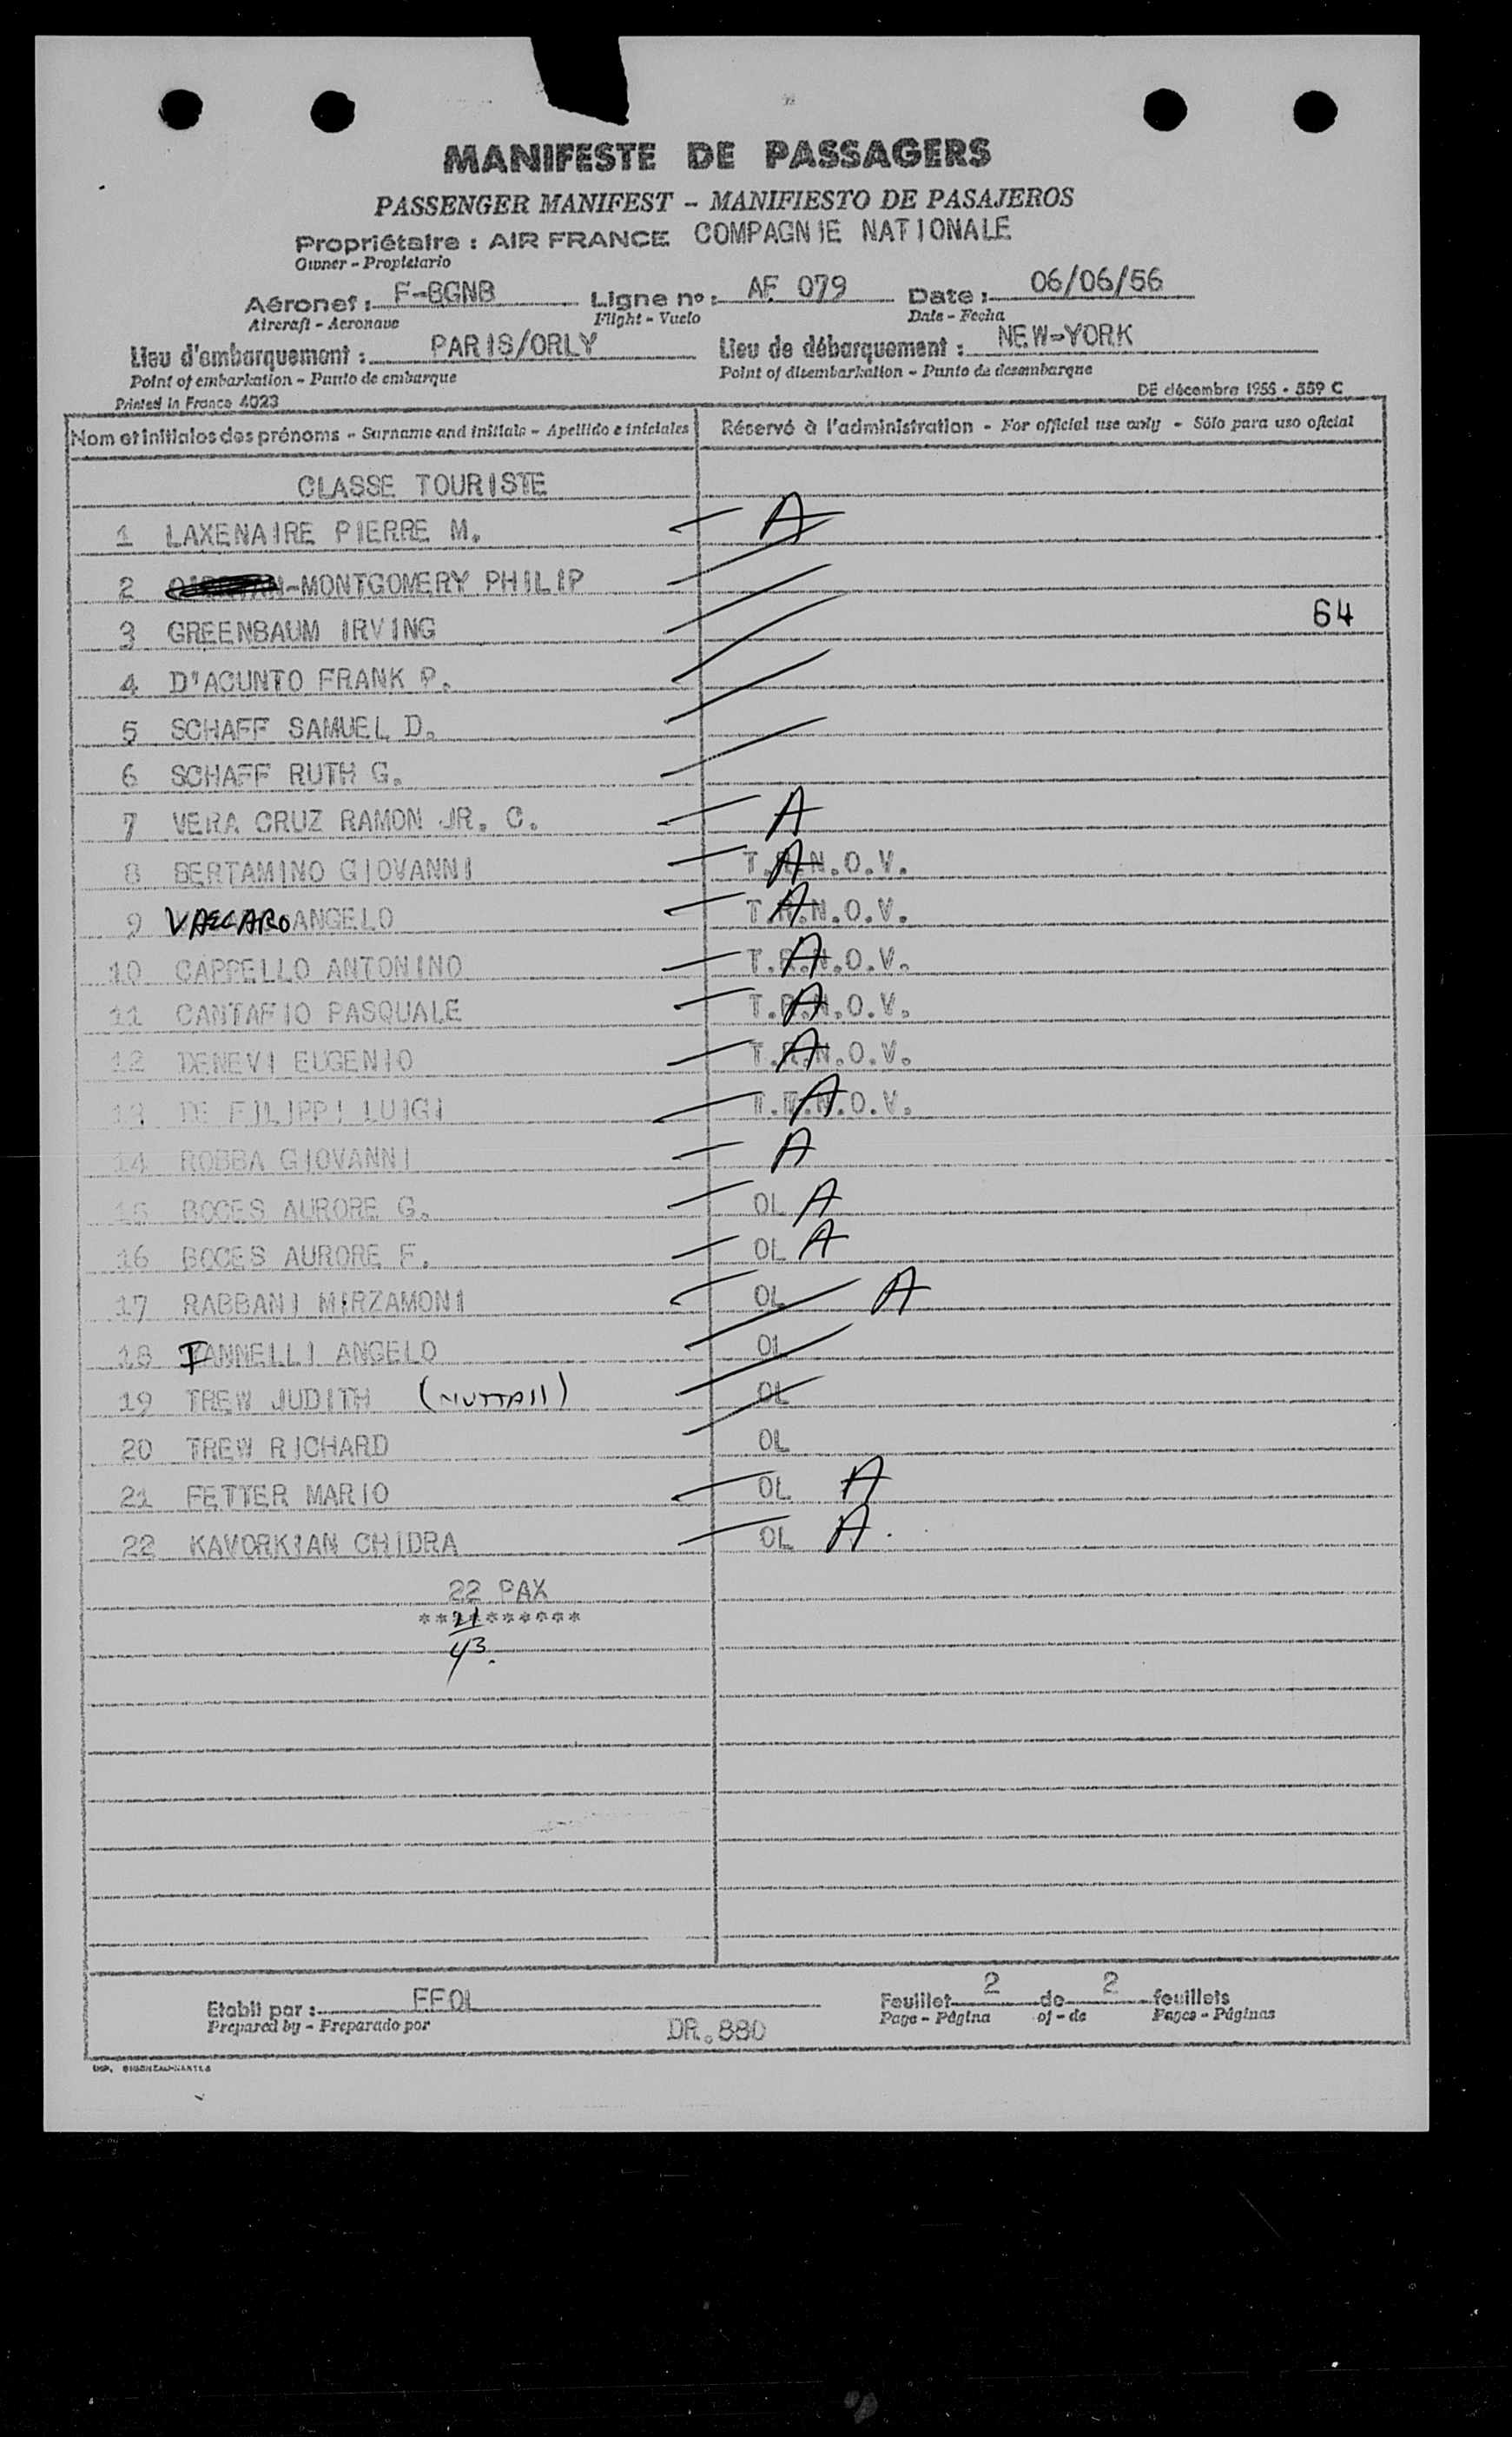 MANIFESTE DE PASSAGERS
PASSENGER MANIFEST - MANIFIESTO DE PASAJEROS
Propriétaire : AIR FRANCE COMPAGNIE NATIONALE
Owner - Propietario
Aéronef : F-BGNB Ligne nº : AF 079 Date : 06/06/56
Aircraft - Aeronave Flight - Vuelo Date - Fecha
Lieu d'embarquement : PARIS/ORLY Lieu de débarquement : NEW-YORK
Point of embarkation - Punto de embarque Point of disembarkation - Punto de desembarque
Printed in France 4023 DE décembre 1955 - 559 C
Nom et initiales des prénoms - Surname and initials - Apellido e iniciales Réservé à l'administration - For official use only - Sólo para uso oficial
CLASSE TOURISTE
1 LAXENAIRE PIERRE M. A
2 -MONTGOMERY PHILIP
3 GREENBAUM IRVING 64
4 D'ACUNTO FRANK P.
5 SCHAFF SAMUEL D.
6 SCHAFF RUTH G.
7 VERA CRUZ RAMON JR. C. A
8 BERTAMINO GIOVANNI T.R.N.O.V. A
9 VACCARO ANGELO T.R.N.O.V. A
10 CAPPELLO ANTONINO T.R.N.O.V. A
11 CANTAFIO PASQUALE T.R.N.O.V. A
12 DENEVI EUGENIO T.R.N.O.V. A
13 DE FILIPPI LUIGI A
14 ROBBA GIOVANNI A
15 BOCES AURORE G. OL A
16 BOCES AURORE F. OL A
17 RABBANI MIRZAMONI OL A
18 IANNELLI ANGELO OL
19 TREW JUDITH (NUTTALL) OL
20 TREW RICHARD OL
21 FETTER MARIO OL A
22 KAVORKIAN CHIDRA OL A
22 PAX
**21*******
43
Etabli par : FFOL Feuillet 2 de 2 feuillets
Prepared by - Preparado por DR.880 Page - Página of - de Pages - Páginas